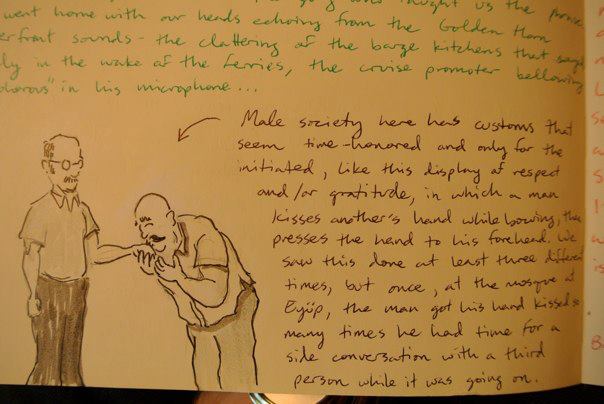 went home with our heads echoing from the Golden Horn
sounds - the clattering of the barge kitchens that
in the wake of the ferries, the cruise promoter bellowing
in his microphone...
Male society here has customs that
seem time-honored and only for the
initiated, like this display of respect
and/or gratitude, in which a man
kisses another's hand while bowing, then
presses the hand to his forehead. We
saw this done at least three different
times, but once, at the mosque at
Eyüp, the man got his hand kissed so
many times he had time for a
side conversation with a third
person while it was going on.